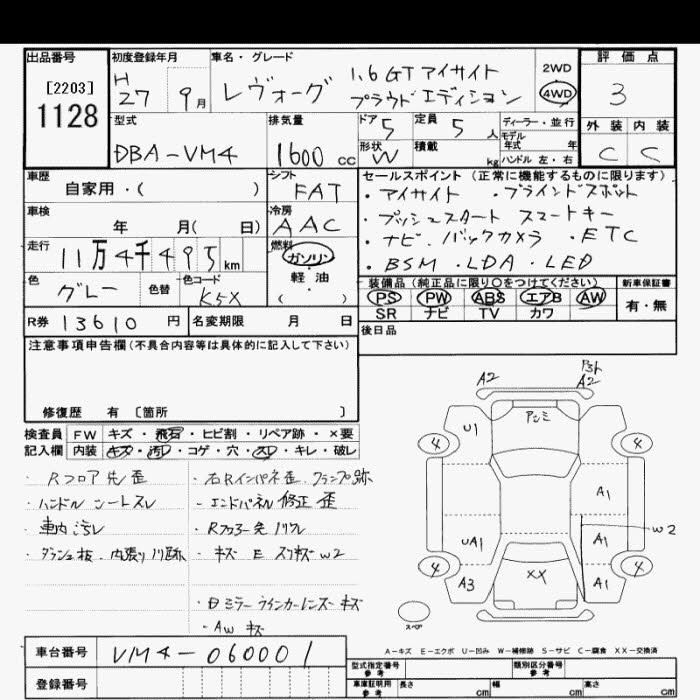 出品番号
[2203]
1128
初度登録年月
H
27 9月
車名・グレード
レヴォーグ
1.6GT アイサイト
プラウドエディション
2WD
4WD
評価点
3
外装 内装
C C
型式
DBA-VM4
排気量
1600 cc
ドア 5
定員 5 人
形状 W
積載 kg
ディーラー・並行
モデル
年式 年
ハンドル 左・右
車歴
自家用・( )
シフト
FAT
車検
年 月( 日)
冷房
AAC
走行
11万4千495km
燃料
ガソリン
軽・油
( )
色
グレー
色替
色コード
K5X
セールスポイント (正常に機能するものに限ります)
・アイサイト ・ブラインドスポット
・プッシュスタート スマートキー
・ナビ・バックカメラ ・ETC
・BSM・LDA・LED
装備品(純正品に限り○をつけてください)
PS PW ABS エアB AW
SR ナビ TV カワ
新車保証書
有・無
R券 13610 円
名変期限 月 日
後日品
注意事項申告欄(不具合内容等は具体的に記入して下さい)
修復歴 有 〔箇所 〕
検査員
記入欄
FW キズ・飛石・ヒビ割・リペア跡・×要
内装 キズ・汚レ・コゲ・穴・スレ・キレ・破レ
・Rフロア先歪
・ハンドル シートスレ
・車内汚レ
・右Rインパネ歪 クランプ跡
・エンドパネル修正歪
・キズ E スリキズ W2
・ミラーウインカーレンズ キズ
・AW キズ
A2
A2
U1
アンミ
4
4
A1
W2
UA1
A1
4
4
A3
XX
A1
スペア
A-キズ E-エクボ U-凹み W-補修跡 S-サビ C-腐食 XX-交換済
車台番号
VM4-060001
登録番号
型式指定番号
参考
類別区分番号
参考
車庫証明用
参考
長さ cm
幅 cm
高さ cm